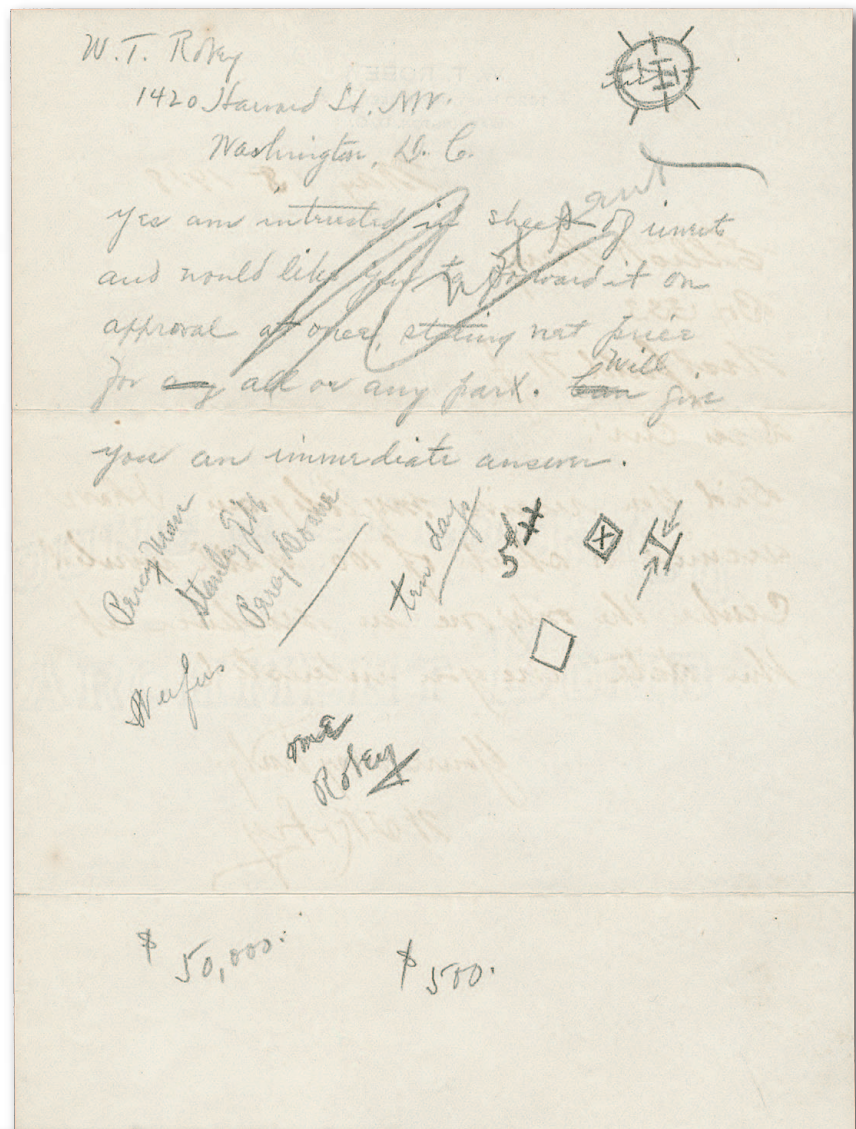 W. T. Robey
1420 Harvard St. NW.
Washington, D. C.
Yes am intrested in sheet of invert
and would like you to forward it on
approval at once, stating net price
for any all or any part. Can Will give
you an immediate answer.
Percy Mann
Stanley
Percy Doane
ten days
5
X
I
Rufus
me
Robey
$ 50,000.
$ 500.